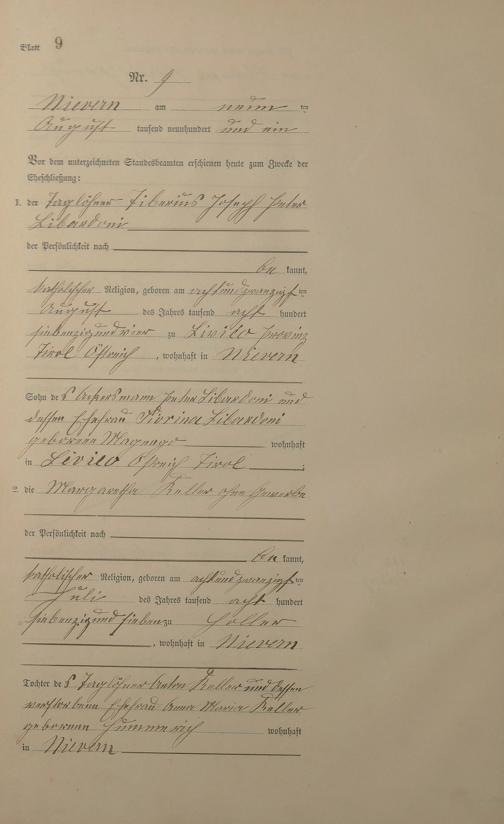 Blatt 9
Nr. 9
Nievern am neun ten
August tausend neunhundert und ein
Vor dem unterzeichneten Standesbeamten erschienen heute zum Zwecke der
Eheschließung:
1. der Taglöhner Tiberius Joseph Peter
Libardoni
der Persönlichkeit nach
be kannt,
katholischer Religion, geboren am achtundzwanzigsten
August des Jahres tausend acht hundert
siebenzigundvier zu Livico Provinz
Tirol Östreich, wohnhaft in Nievern
Sohn des Ackersmann Peter Libardoni und
dessen Ehefrau Libardoni
geborenen wohnhaft
in Levico Östreich Tirol;
2. die Margaretha Keller ohne Gewerbe
der Persönlichkeit nach
be kannt,
katholischer Religion, geboren am achtundzwanzigsten
Juli des Jahres tausend acht hundert
siebenzigundsieben zu Holler
, wohnhaft in Nievern
Tochter des Taglöhner Anton Keller und dessen
verstorbenen Ehefrau Anna Maria Keller
geborenen Hummerich wohnhaft
in Nievern